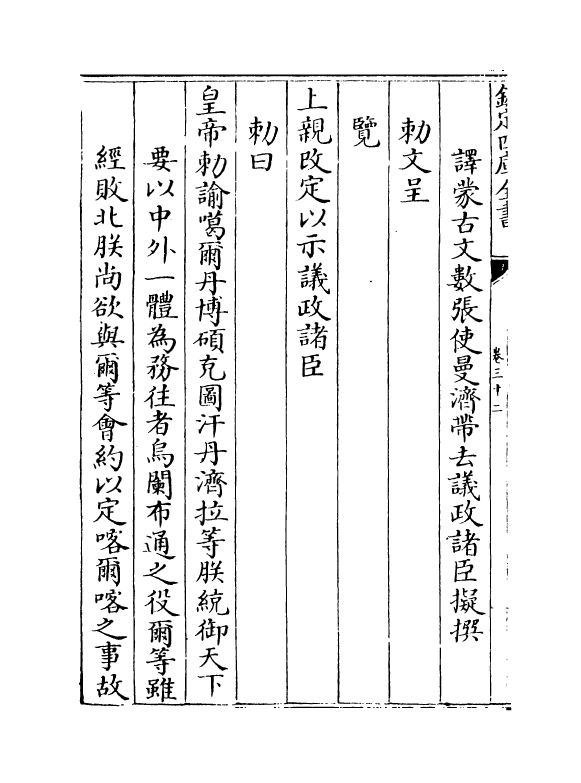 欽定四庫全書
卷三十二
譯蒙古文數張使曼濟帶去議政諸臣擬撰
勅文呈
覽
上親改定以示議政諸臣
勅曰
皇帝勅諭噶爾丹博碩克圖汗丹濟拉等朕統御天下
要以中外一體為務往者烏闌布通之役爾等雖
經敗北朕尚欲與爾等會約以定喀爾喀之事故